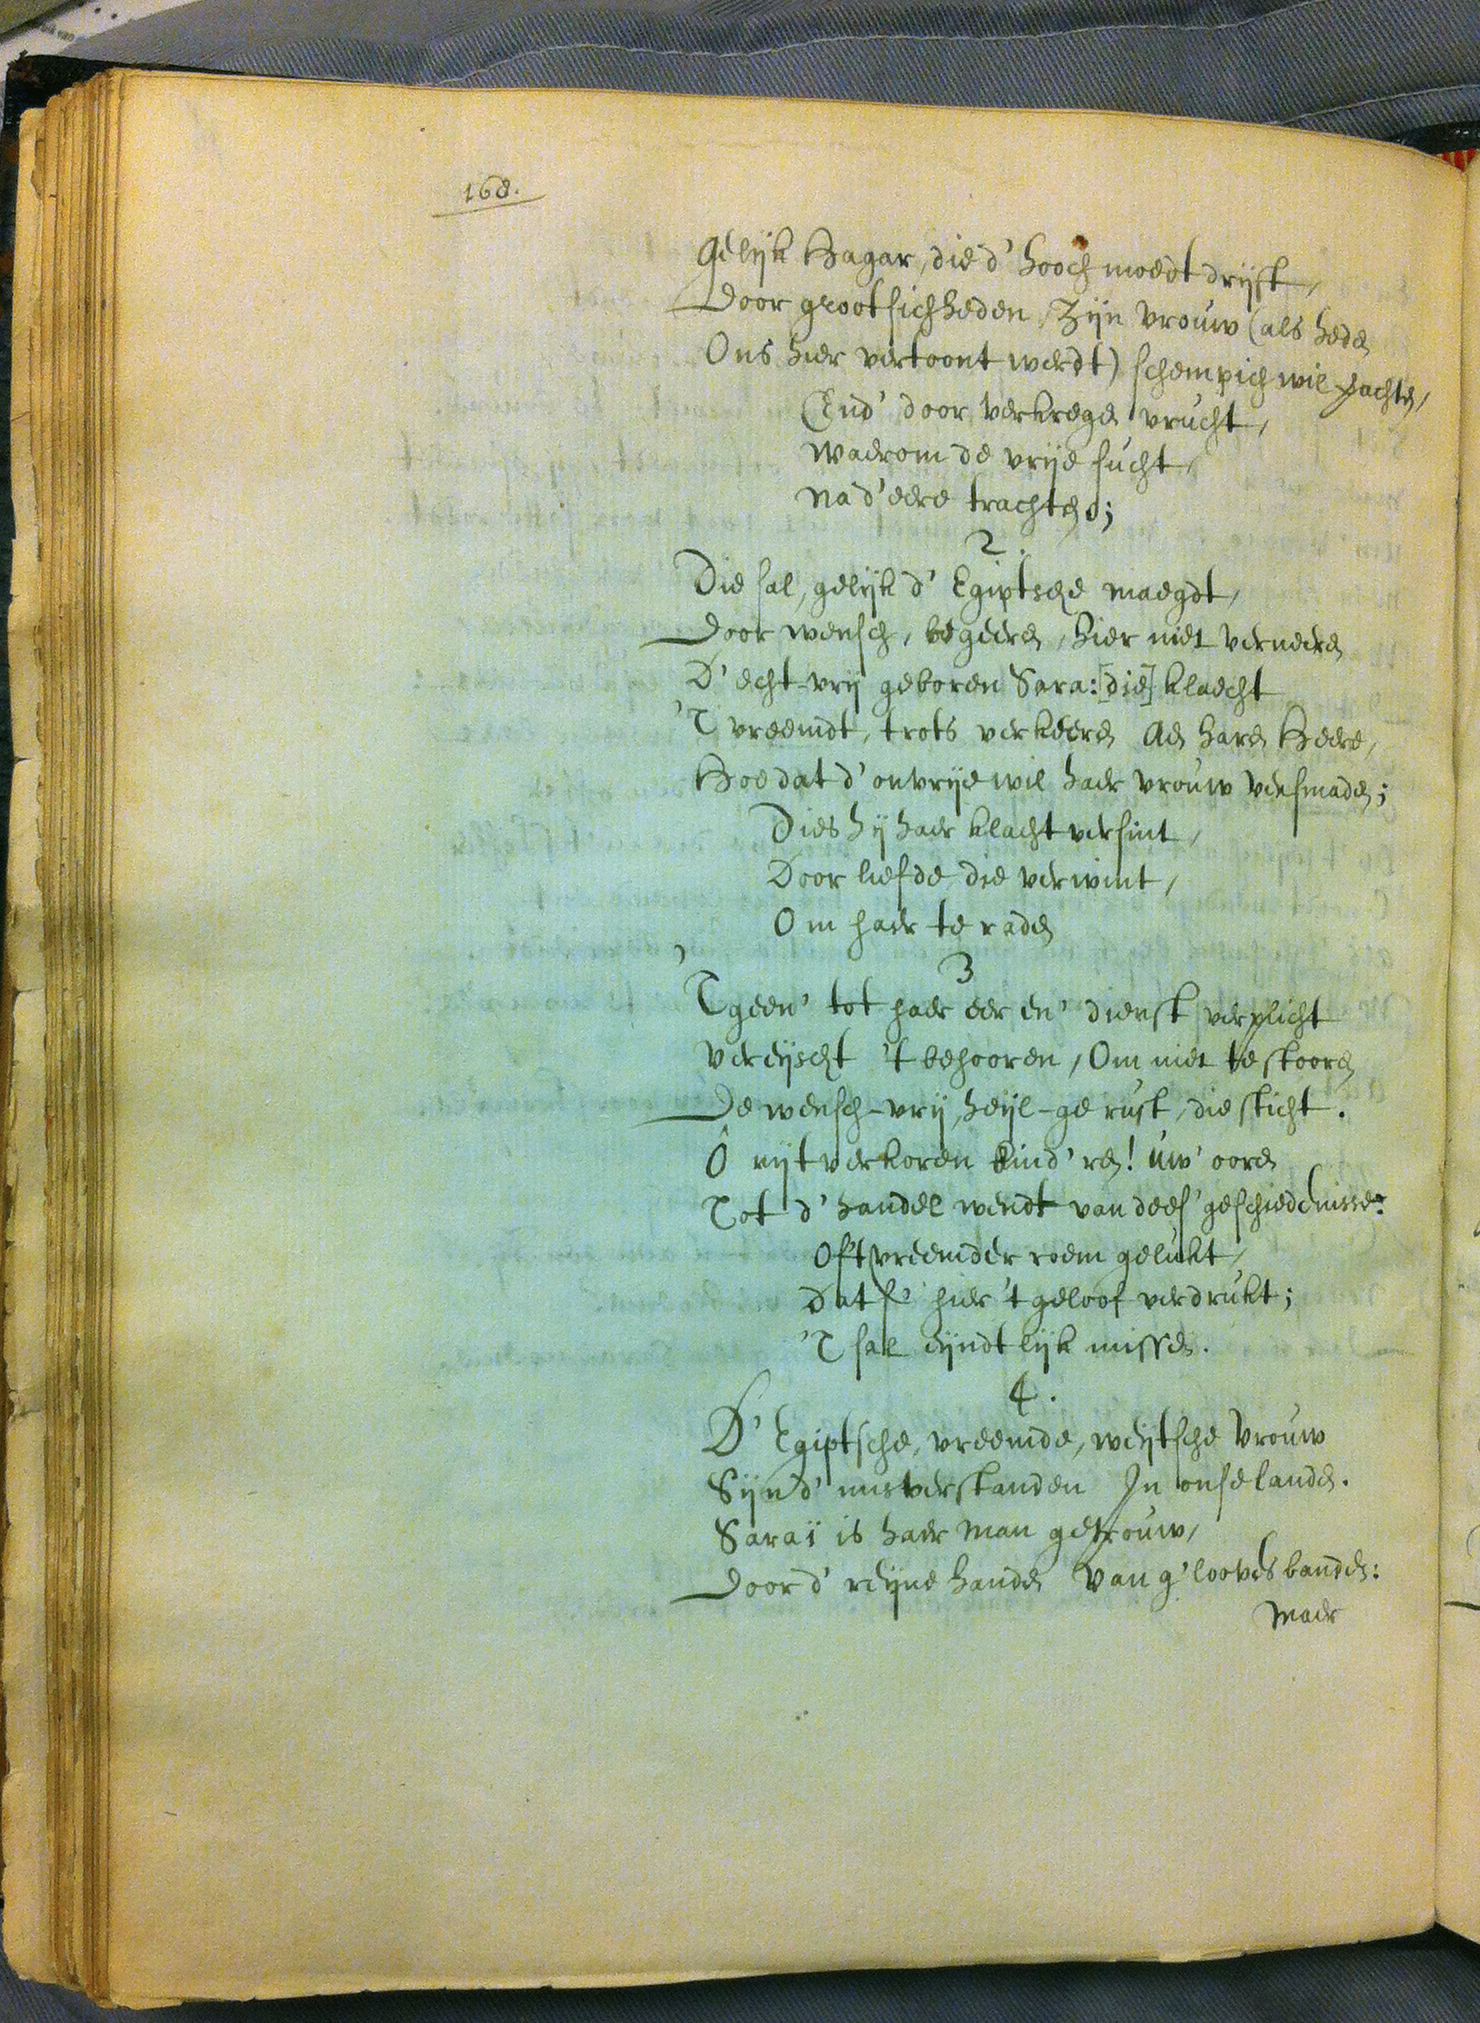 168.
Gelijk Hagar, die d' hoochmoedt drijft,
Door grootsichheden, Zijn vrouw (als heden
Ons hier vertoont werdt) schempich wil achten,
End' door verkregen vrucht,
Waerom de vrije sucht,
Na d' eere trachten;
2.
Die sal, gelijk d' Egiptsche maegdt,
Door wensch, begeeren, hier niet verneeren
D' echt-vrij geboren Sara: [die] klaecht
'T vreemdt, trots verkeeren Aen haren Heere,
Hoe dat d' onvrije wil haer vrouw versmaden;
Dies hij haer klacht versint,
Door liefde die verwint,
Om haer te raden
3
'Tgeen' tot haer eer en' dienst verplicht
Vereijscht 't behooren, Om niet te stooren
De wensch-vrij, heijl-gerust, die sticht.
Ô uijtverkoren kind'ren! uw' ooren
Tot d' handel wendt van dees' geschiedenisse:
Oft vreemder roem gelukt,
Dat s' hier 't geloof verdrukt;
'T sal eijndtlijk missen.
4.
D' Egiptsche, vreemde, weijtsche Vrouw
Sijn d' misverstanden In onse landen.
Saraï is haer Man getrouw,
Door d' reijne handen Van g'loovts banden:
Maer